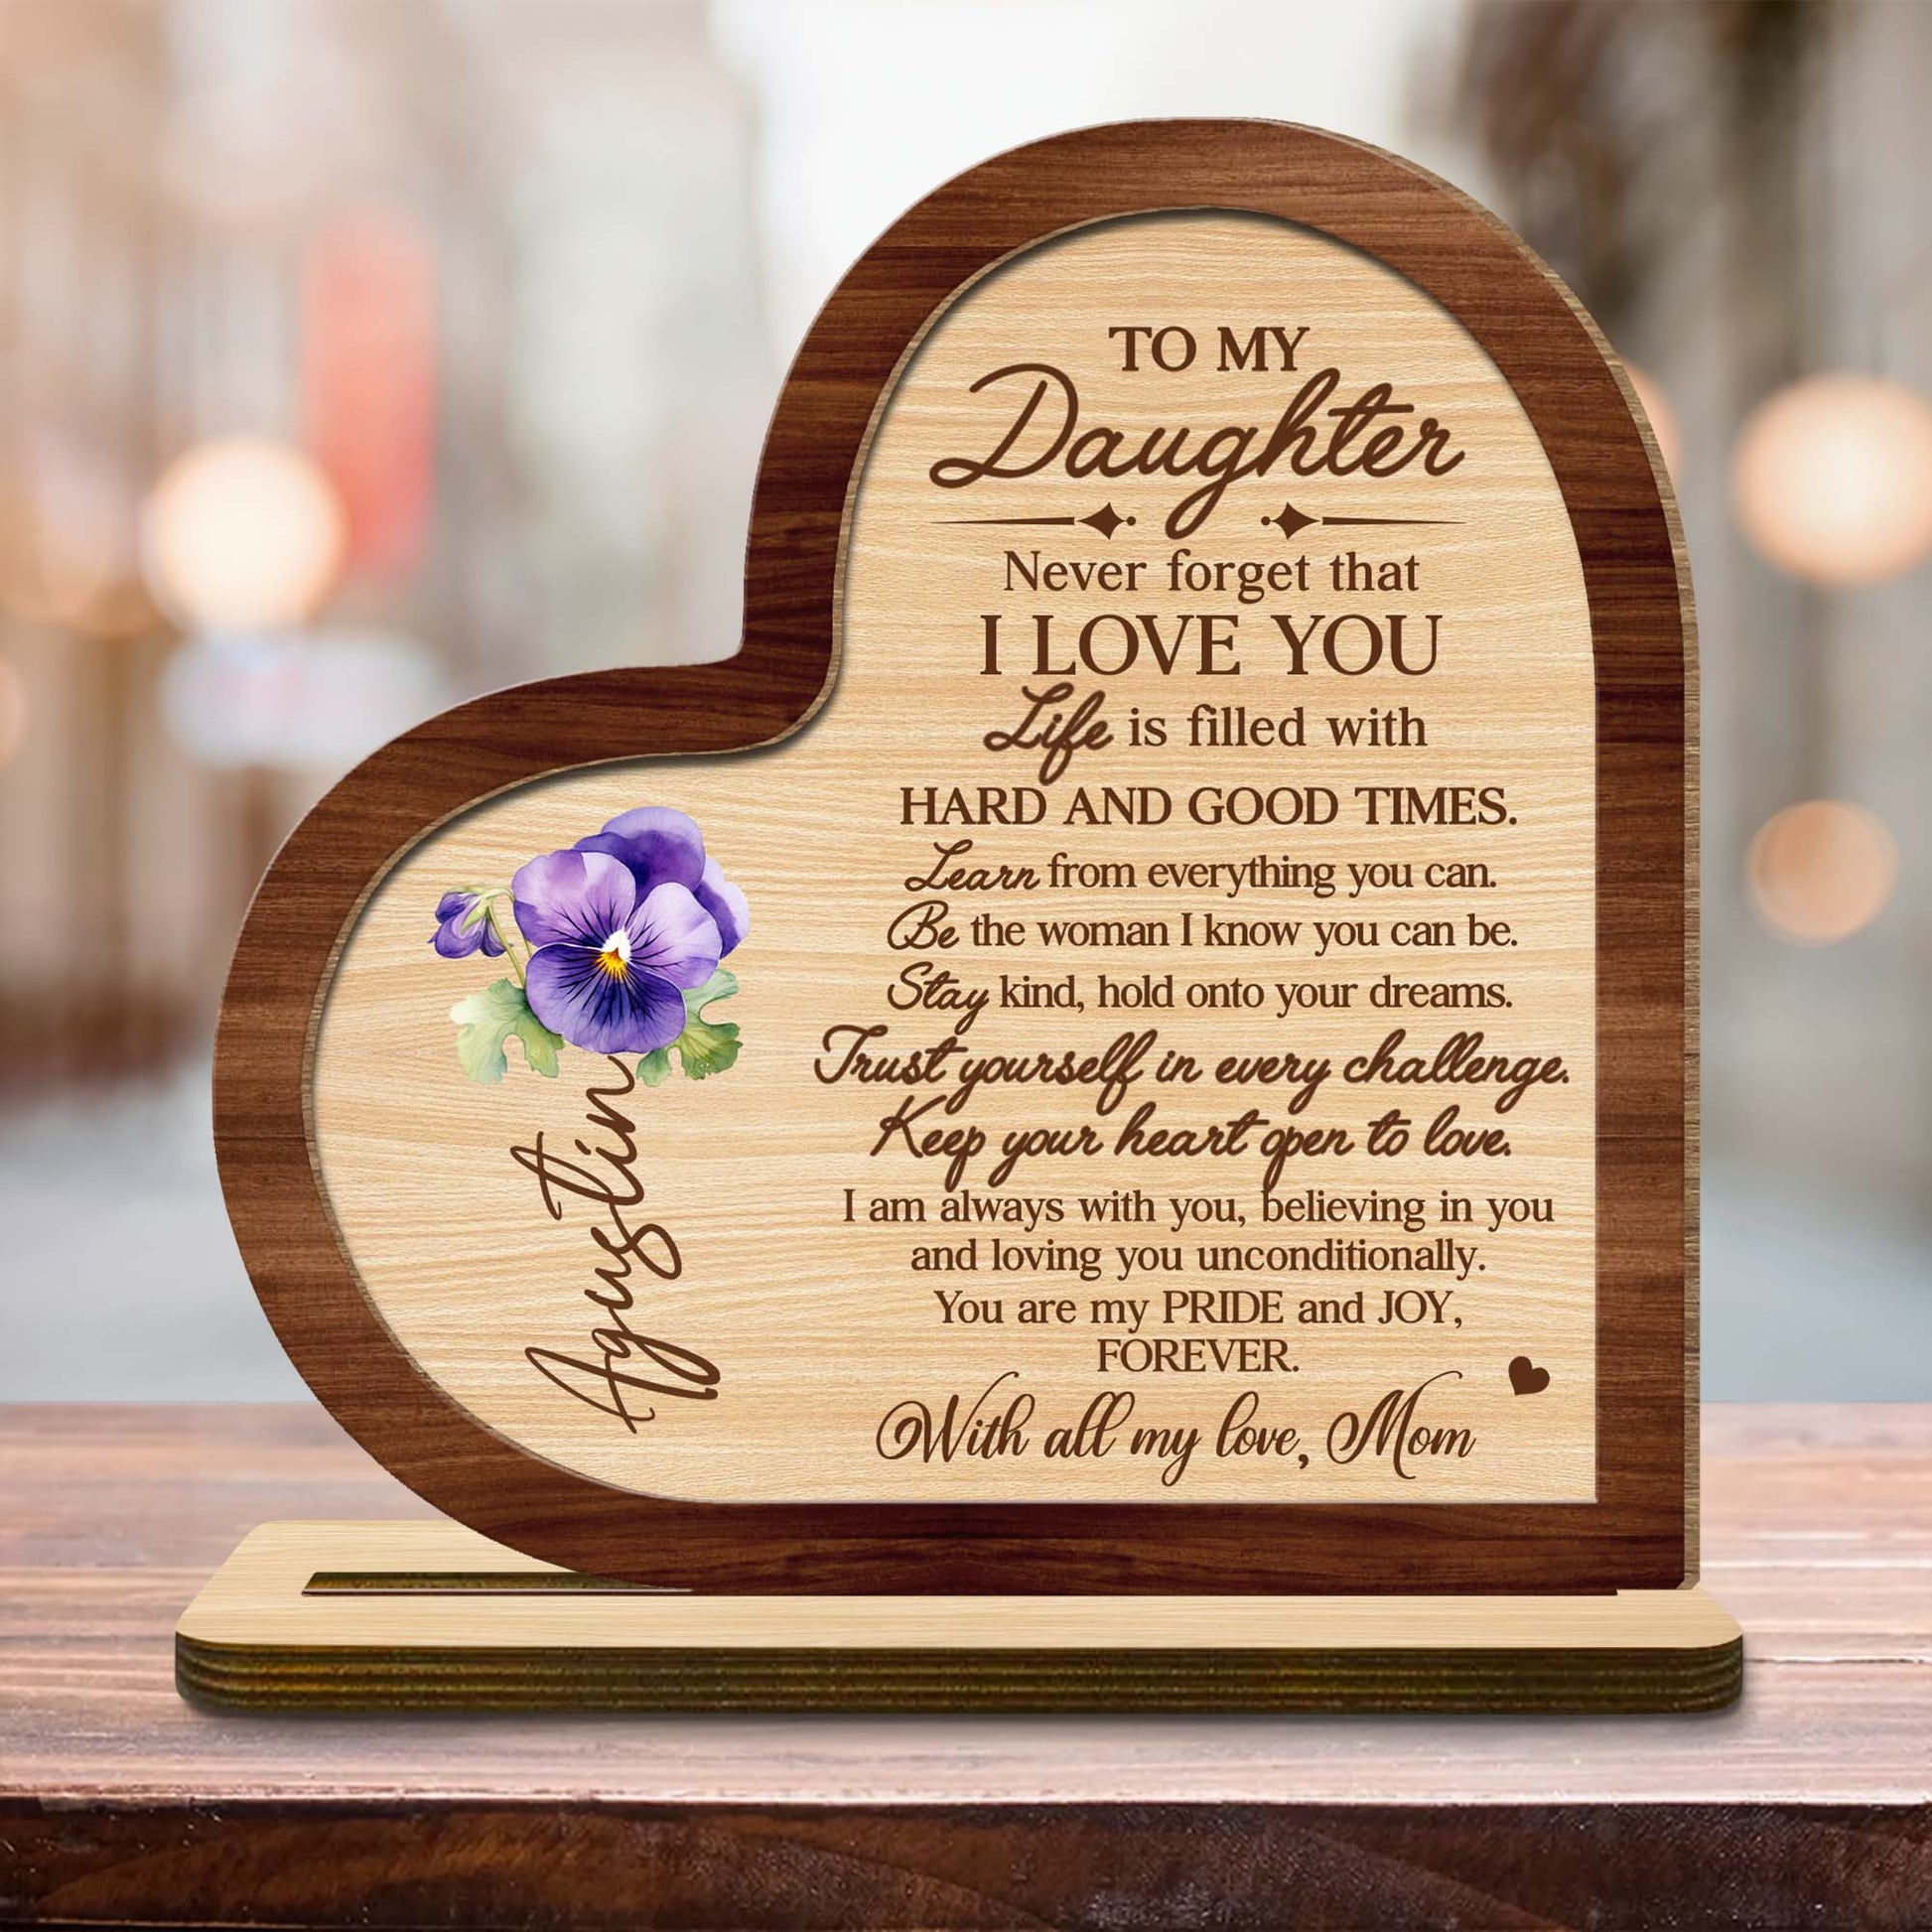 TO MY
Daughter
Never forget that
I LOVE YOU
Life is filled with
HARD AND GOOD TIMES.
Learn from everything you can.
Be the woman I know you can be.
Stay kind, hold onto your dreams.
Trust yourself in every challenge.
Keep your heart open to love.
I am always with you, believing in you
and loving you unconditionally.
You are my PRIDE and JOY,
FOREVER.
With all my love, Mom
Agustin